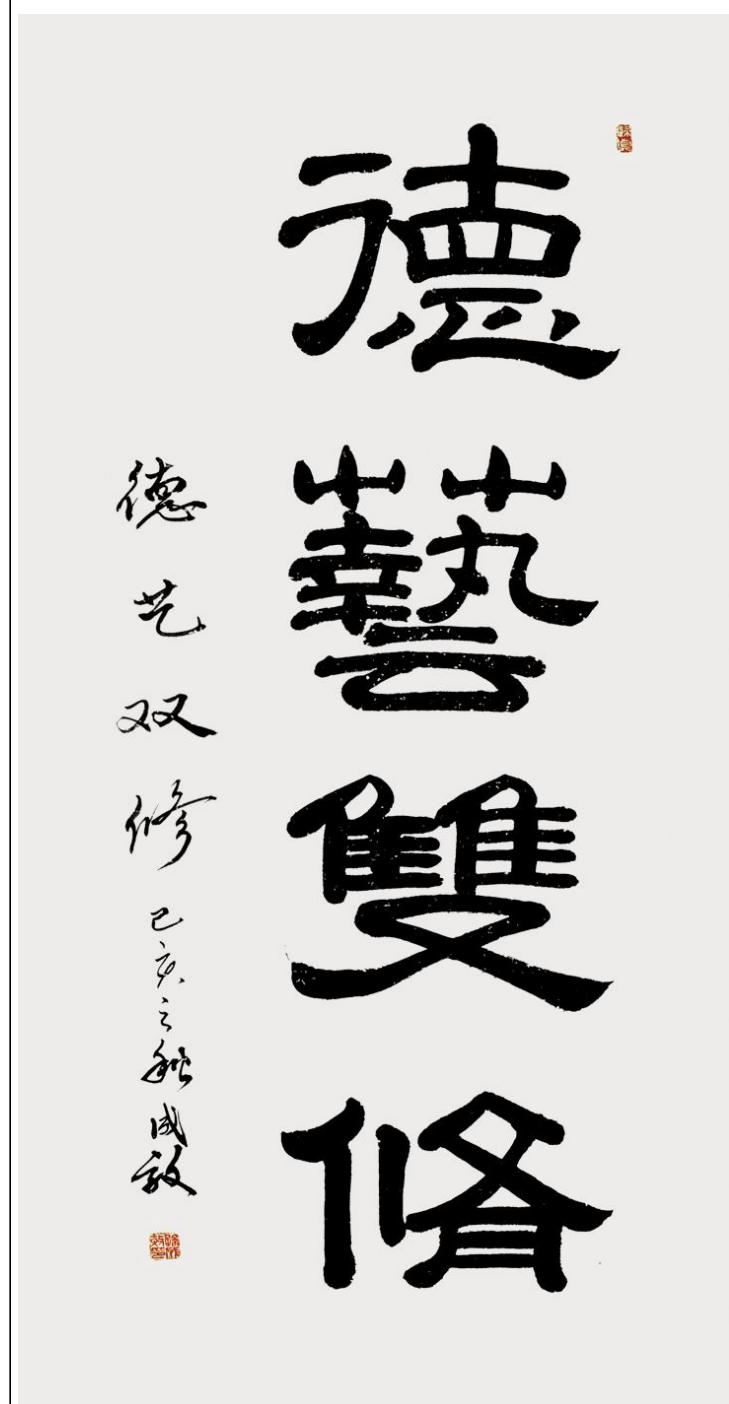 德藝雙脩
德艺双修 己亥之秋 成